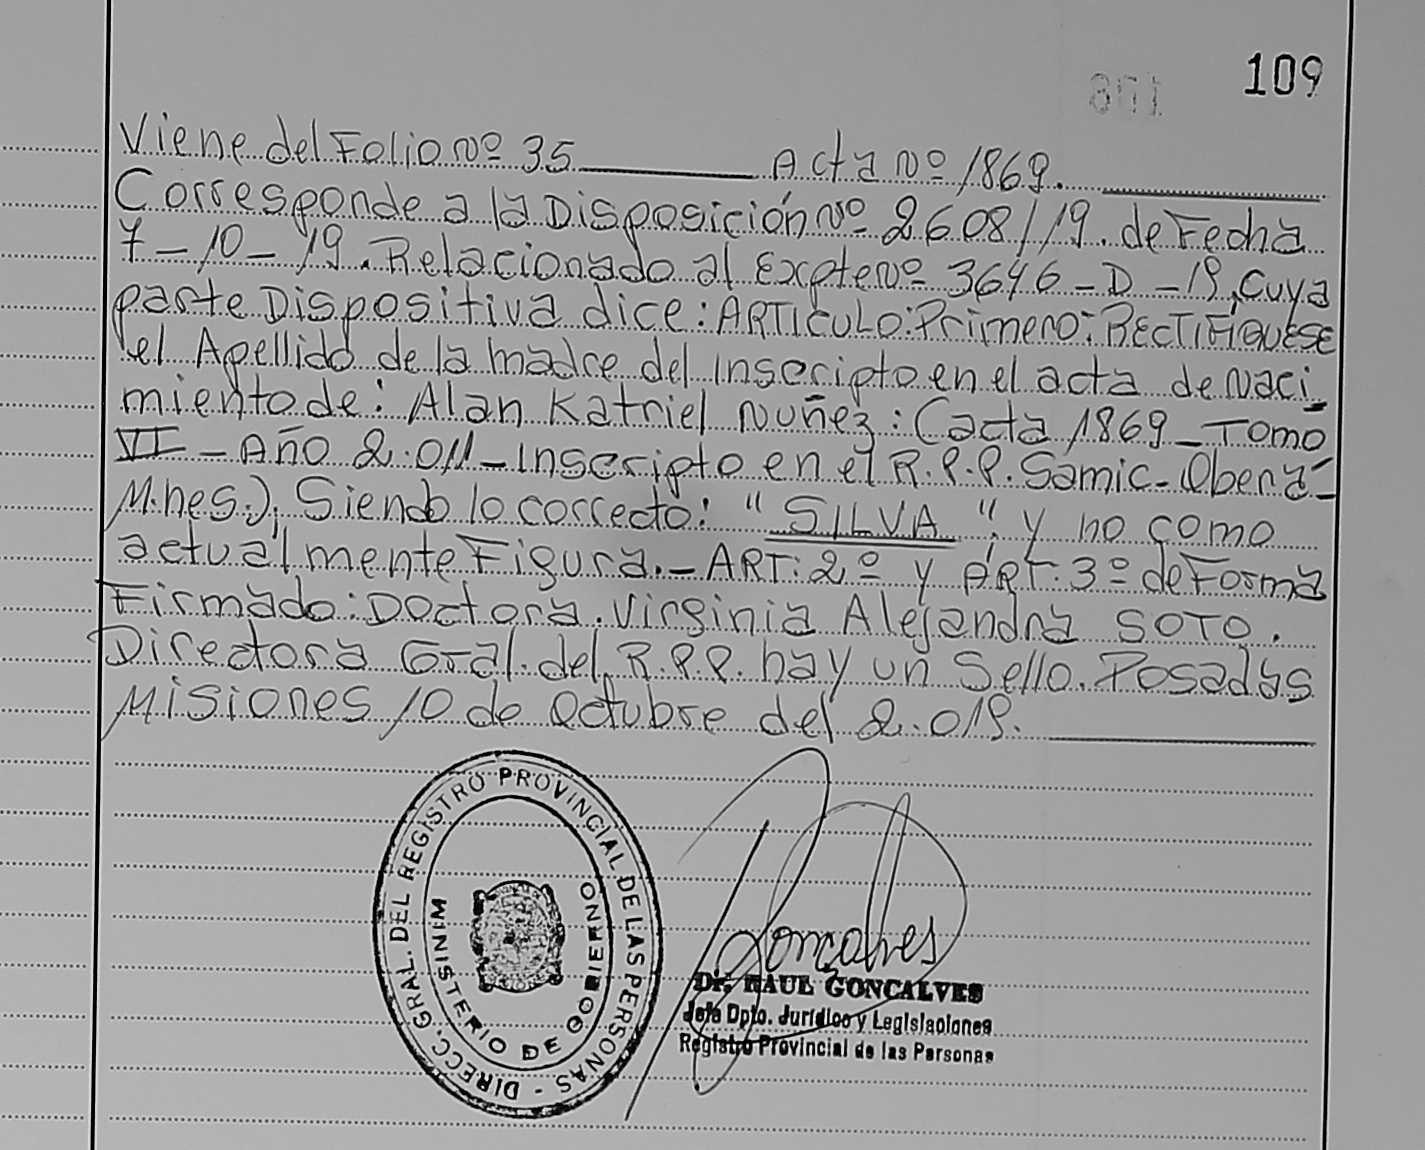 109
Viene del Folio Nº 35 Acta Nº 1869.
Corresponde a la Disposición Nº 2608/19. de Fecha
7-10-19. Relacionado al Expte Nº 3646-D-19, Cuya
parte Dispositiva dice: ARTICULO: Primero: RECTIFIQUESE
el Apellido de la madre del inscripto en el acta de Naci_
miento de: Alan Katriel Nuñez: (acta 1869-Tomo
VI-Año 2.011-Inscripto en el R.P.P. Samic-Oberá-
M.nes.), Siendo lo correcto: "SILVA", y no como
actualmente Figura.- ART: 2º y ART: 3º de Forma
Firmado: Doctora. Virginia Alejandra SOTO.
Directora Gral. del R.P.P. hay un Sello. Posadas
Misiones 10 de Octubre del 2.019.
DIRECC. GRAL. DEL REGISTRO PROVINCIAL DE LAS PERSONAS -
MINISTERIO DE GOBIERNO
Goncalves
Dr. RAUL GONCALVES
Jefe Dpto. Jurídico y Legislaciones
Registro Provincial de las Personas